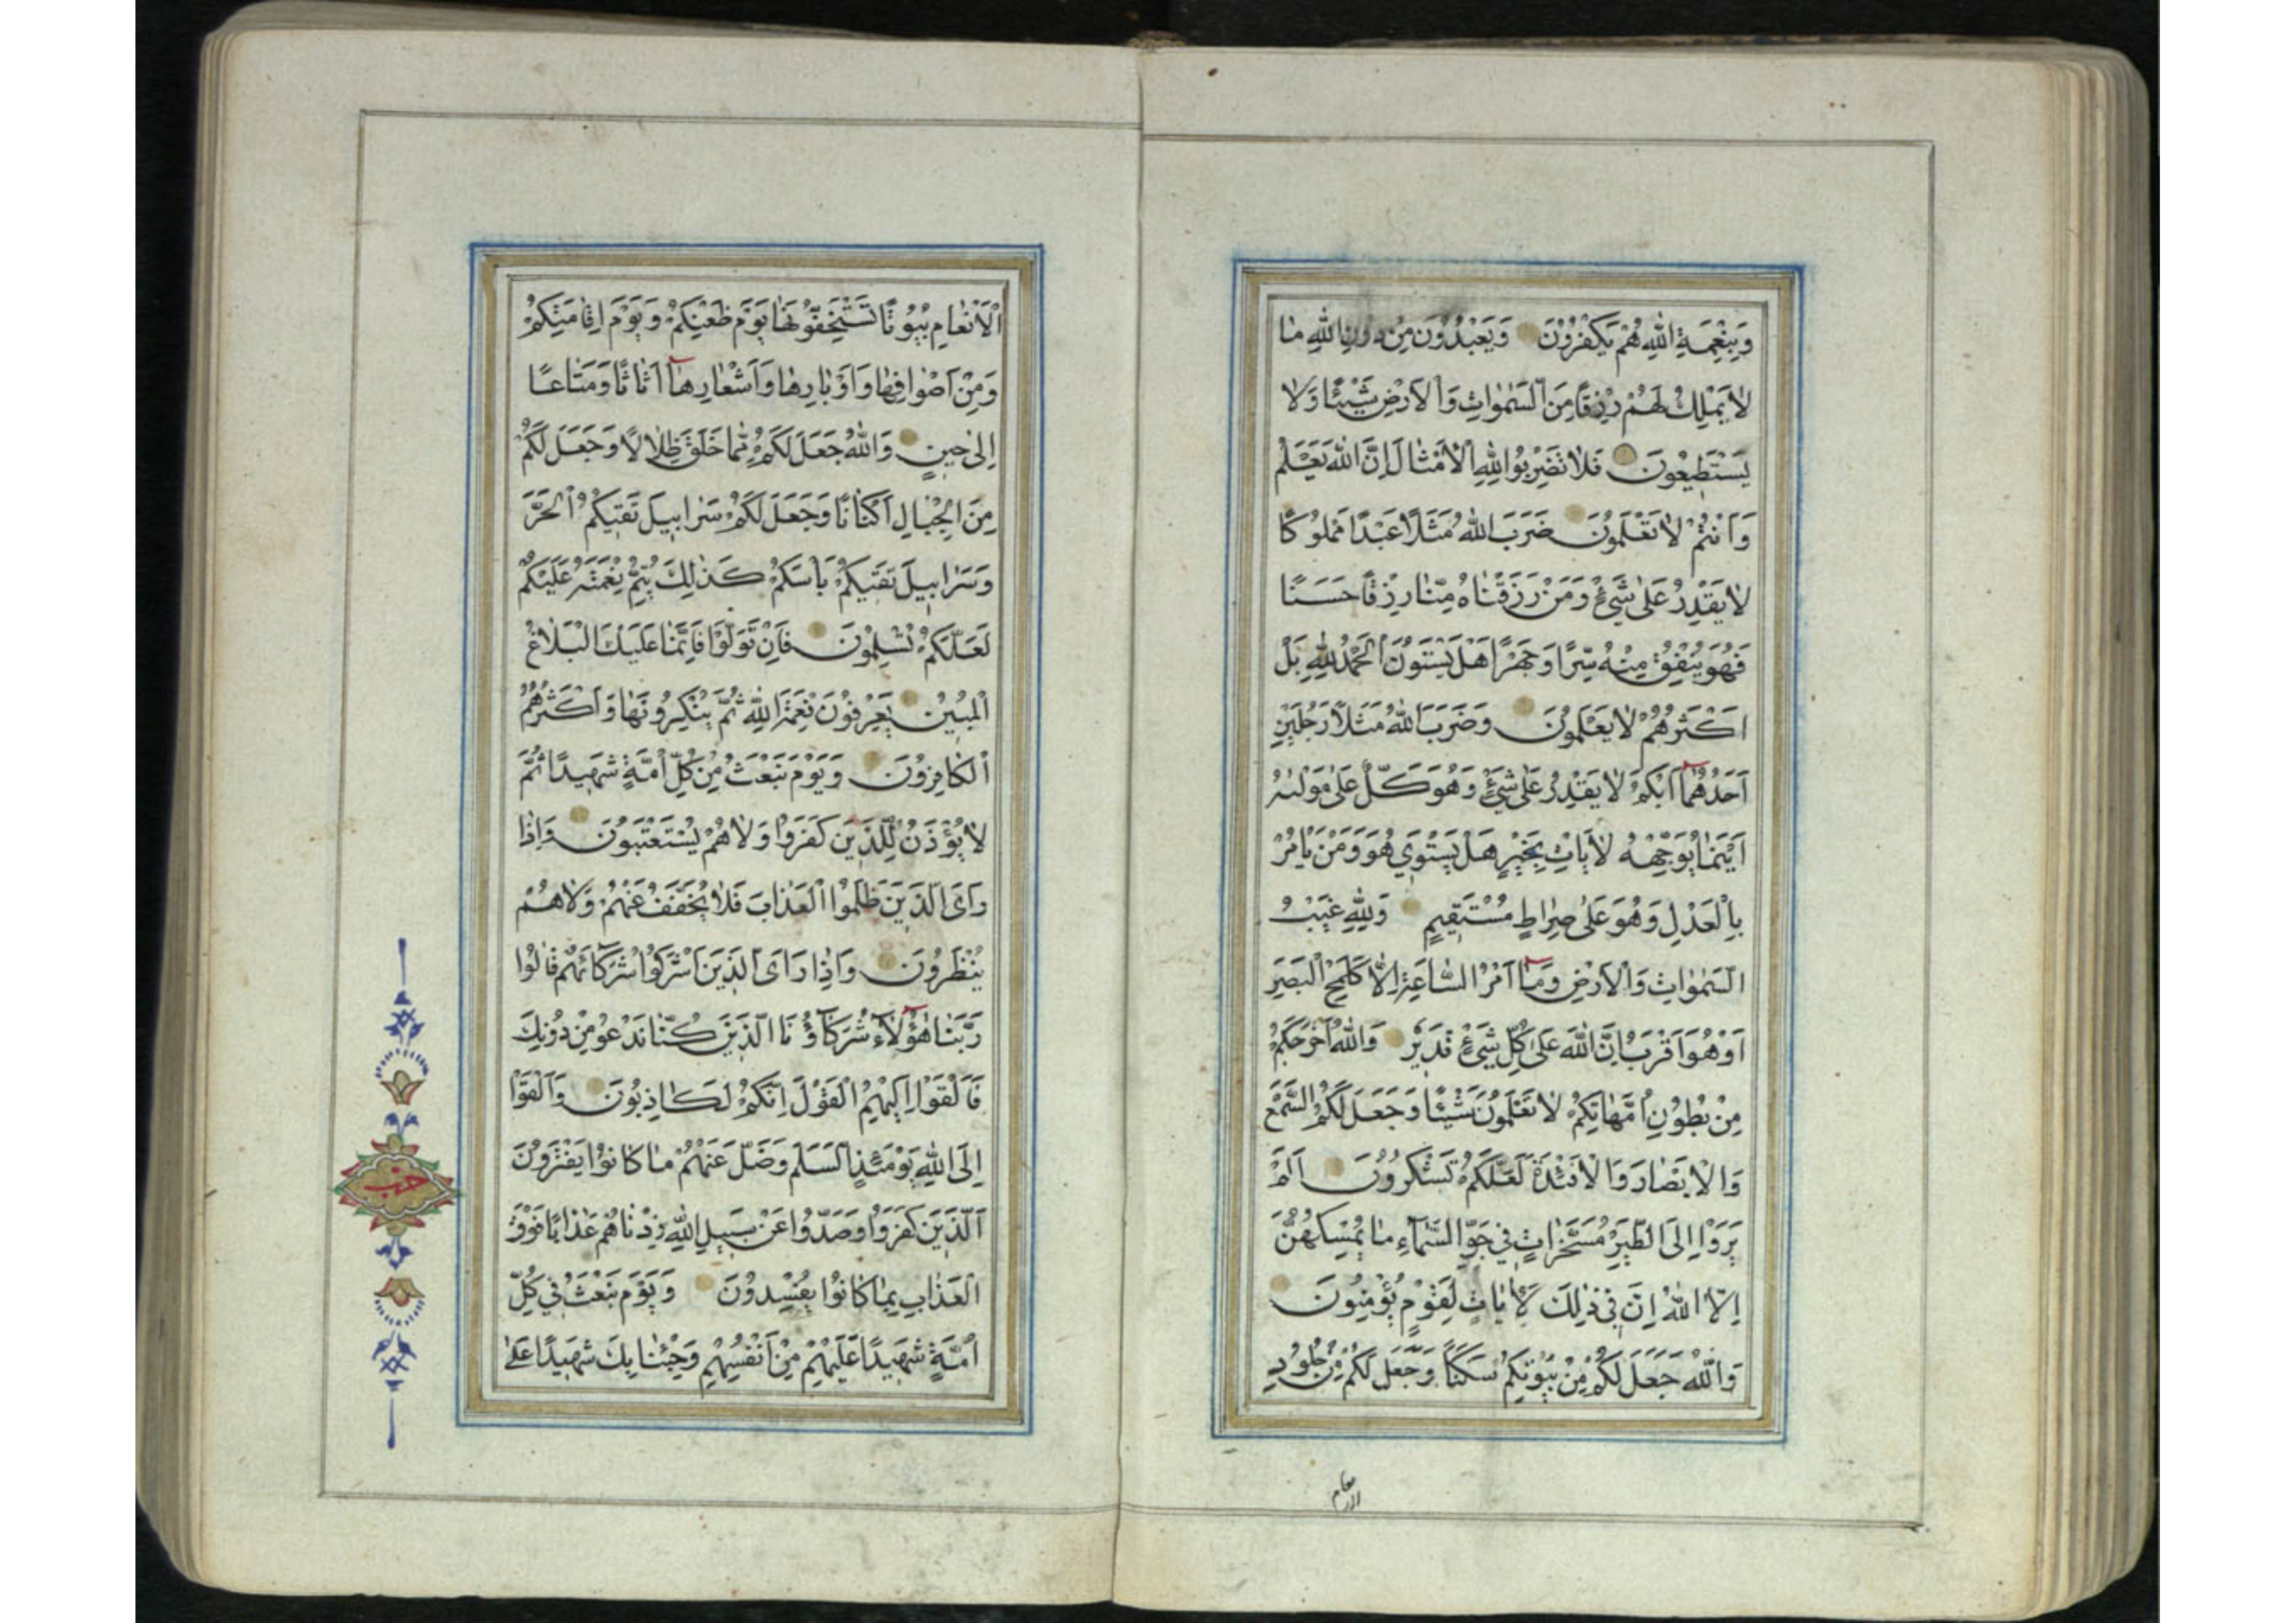 وَبِنِعْمَةِ اللّٰهِ هُمْ يَكْفُرُونَ وَيَعْبُدُونَ مِنْ دُونِ اللّٰهِ مٰا
لٰا يَمْلِكُ لَهُمْ رِزْقًا مِنَ السَّمٰوٰاتِ وَالْاَرْضِ شَيْئًا وَلٰا
يَسْتَطِيعُونَ فَلٰا تَضْرِبُوا لِلّٰهِ الْاَمْثٰالَ اِنَّ اللّٰهَ يَعْلَمُ
وَاَنْتُمْ لٰا تَعْلَمُونَ ضَرَبَ اللّٰهُ مَثَلًا عَبْدًا مَمْلُوكًا
لٰا يَقْدِرُ عَلٰى شَيْءٍ وَمَنْ رَزَقْنٰاهُ مِنّٰا رِزْقًا حَسَنًا
فَهُوَ يُنْفِقُ مِنْهُ سِرًّا وَجَهْرًا هَلْ يَسْتَوُونَ الْحَمْدُ لِلّٰهِ بَلْ
اَكْثَرُهُمْ لٰا يَعْلَمُونَ وَضَرَبَ اللّٰهُ مَثَلًا رَجُلَيْنِ
اَحَدُهُمٰا اَبْكَمُ لٰا يَقْدِرُ عَلٰى شَيْءٍ وَهُوَ كَلٌّ عَلٰى مَوْلٰيهُ
اَيْنَمٰا يُوَجِّهْهُ لٰا يَأْتِ بِخَيْرٍ هَلْ يَسْتَوِي هُوَ وَمَنْ يَأْمُرُ
بِالْعَدْلِ وَهُوَ عَلٰى صِرٰاطٍ مُسْتَقِيمٍ وَلِلّٰهِ غَيْبُ
السَّمٰوٰاتِ وَالْاَرْضِ وَمٰا اَمْرُ السّٰاعَةِ اِلّٰا كَلَمْحِ الْبَصَرِ
اَوْ هُوَ اَقْرَبُ اِنَّ اللّٰهَ عَلٰى كُلِّ شَيْءٍ قَدِيرٌ وَاللّٰهُ اَخْرَجَكُمْ
مِنْ بُطُونِ اُمَّهٰاتِكُمْ لٰا تَعْلَمُونَ شَيْئًا وَجَعَلَ لَكُمُ السَّمْعَ
وَالْاَبْصٰارَ وَالْاَفْئِدَةَ لَعَلَّكُمْ تَشْكُرُونَ اَلَمْ
يَرَوْا اِلَى الطَّيْرِ مُسَخَّرٰاتٍ فِي جَوِّ السَّمٰاءِ مٰا يُمْسِكُهُنَّ
اِلَّا اللّٰهُ اِنَّ فِي ذٰلِكَ لَاٰيٰاتٍ لِقَوْمٍ يُؤْمِنُونَ
وَاللّٰهُ جَعَلَ لَكُمْ مِنْ بُيُوتِكُمْ سَكَنًا وَجَعَلَ لَكُمْ مِنْ جُلُودِ
الانعام
الْاَنْعٰامِ بُيُوتًا تَسْتَخِفُّونَهٰا يَوْمَ ظَعْنِكُمْ وَيَوْمَ اِقٰامَتِكُمْ
وَمِنْ اَصْوٰافِهٰا وَاَوْبٰارِهٰا وَاَشْعٰارِهٰا اَثٰاثًا وَمَتٰاعًا
اِلٰى حِينٍ وَاللّٰهُ جَعَلَ لَكُمْ مِمّٰا خَلَقَ ظِلٰالًا وَجَعَلَ لَكُمْ
مِنَ الْجِبٰالِ اَكْنٰانًا وَجَعَلَ لَكُمْ سَرٰابِيلَ تَقِيكُمُ الْحَرَّ
وَسَرٰابِيلَ تَقِيكُمْ بَأْسَكُمْ كَذٰلِكَ يُتِمُّ نِعْمَتَهُ عَلَيْكُمْ
لَعَلَّكُمْ تُسْلِمُونَ فَاِنْ تَوَلَّوْا فَاِنَّمٰا عَلَيْكَ الْبَلٰاغُ
الْمُبِينُ يَعْرِفُونَ نِعْمَةَ اللّٰهِ ثُمَّ يُنْكِرُونَهٰا وَاَكْثَرُهُمُ
الْكٰافِرُونَ وَيَوْمَ نَبْعَثُ مِنْ كُلِّ اُمَّةٍ شَهِيدًا ثُمَّ
لٰا يُؤْذَنُ لِلَّذِينَ كَفَرُوا وَلٰا هُمْ يُسْتَعْتَبُونَ وَاِذٰا
رَاَى الَّذِينَ ظَلَمُوا الْعَذٰابَ فَلٰا يُخَفَّفُ عَنْهُمْ وَلٰا هُمْ
يُنْظَرُونَ وَاِذٰا رَاَى الَّذِينَ اَشْرَكُوا شُرَكٰائَهُمْ قٰالُوا
رَبَّنٰا هٰؤُلٰاءِ شُرَكٰاؤُنَا الَّذِينَ كُنّٰا نَدْعُو مِنْ دُونِكَ
فَاَلْقَوْا اِلَيْهِمُ الْقَوْلَ اِنَّكُمْ لَكٰاذِبُونَ وَاَلْقَوْا
اِلَى اللّٰهِ يَوْمَئِذٍ السَّلَمَ وَضَلَّ عَنْهُمْ مٰا كٰانُوا يَفْتَرُونَ
اَلَّذِينَ كَفَرُوا وَصَدُّوا عَنْ سَبِيلِ اللّٰهِ زِدْنٰاهُمْ عَذٰابًا فَوْقَ
الْعَذٰابِ بِمٰا كٰانُوا يُفْسِدُونَ وَيَوْمَ نَبْعَثُ فِي كُلِّ
اُمَّةٍ شَهِيدًا عَلَيْهِمْ مِنْ اَنْفُسِهِمْ وَجِئْنٰا بِكَ شَهِيدًا عَلٰى
حزب